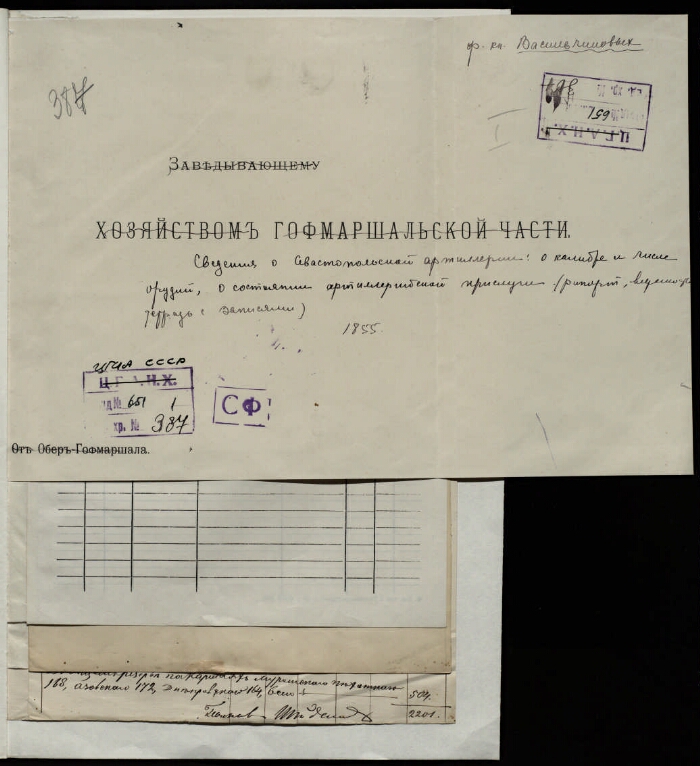 ф. кн. Васильчиковых
387
Ц.Г.А.Н.Х.
651
387
I
ЗАВѢДЫВАЮЩЕМУ
ХОЗЯЙСТВОМЪ ГОФМАРШАЛЬСКОЙ ЧАСТИ.
Сведения о Севастопольской артиллерии: о калибре и числе
орудий, о состоянии артиллерийской прислуги (рапорт, ведомость,
тетрадь с записями)
1855.
ЦГИА СССР
Ц.Г.А.Н.Х.
нд № 651 1
хр. № 387
СФ
Отъ Оберъ-Гофмаршала.
168, Азовскаго 172, Днѣпровскаго 164, 504.
2201.